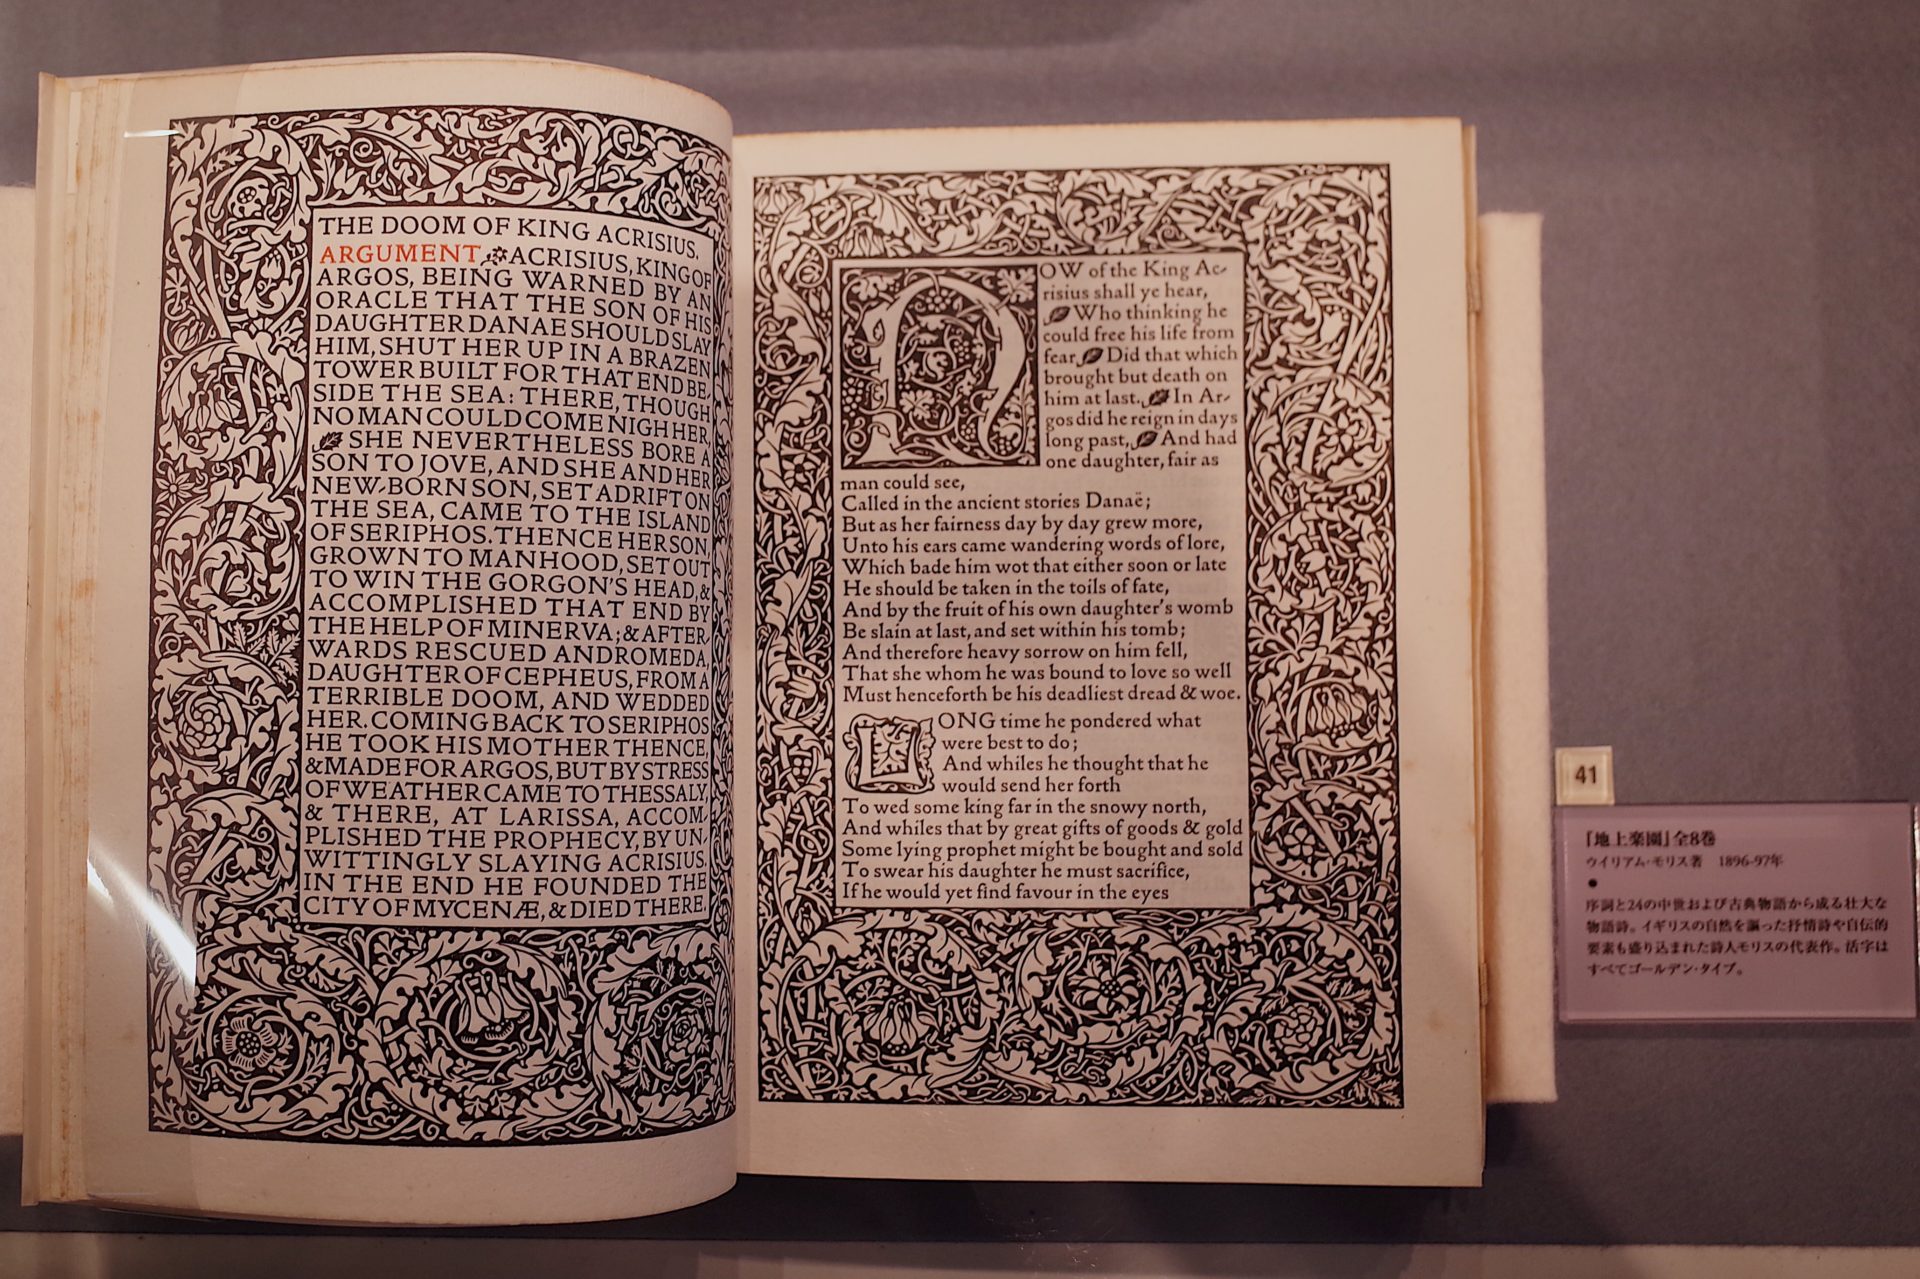 THE DOOM OF KING ACRISIUS.
ARGUMENT. ACRISIUS, KING OF
ARGOS, BEING WARNED BY AN
ORACLE THAT THE SON OF HIS
DAUGHTER DANAE SHOULD SLAY
HIM, SHUT HER UP IN A BRAZEN
TOWER BUILT FOR THAT END BE-
SIDE THE SEA: THERE, THOUGH
NO MAN COULD COME NIGH HER,
SHE NEVERTHELESS BORE A
SON TO JOVE, AND SHE AND HER
NEW-BORN SON, SET ADRIFT ON
THE SEA, CAME TO THE ISLAND
OF SERIPHOS. THENCE HER SON,
GROWN TO MANHOOD, SET OUT
TO WIN THE GORGON'S HEAD, &
ACCOMPLISHED THAT END BY
THE HELP OF MINERVA; & AFTER-
WARDS RESCUED ANDROMEDA,
DAUGHTER OF CEPHEUS, FROM A
TERRIBLE DOOM, AND WEDDED
HER. COMING BACK TO SERIPHOS
HE TOOK HIS MOTHER THENCE,
& MADE FOR ARGOS, BUT BY STRESS
OF WEATHER CAME TO THESSALY,
& THERE, AT LARISSA, ACCOM-
PLISHED THE PROPHECY, BY UN-
WITTINGLY SLAYING ACRISIUS.
IN THE END HE FOUNDED THE
CITY OF MYCENÆ, & DIED THERE.
NOW of the King Ac-
risius shall ye hear,
Who thinking he
could free his life from
fear, Did that which
brought but death on
him at last. In Ar-
gos did he reign in days
long past, And had
one daughter, fair as
man could see,
Called in the ancient stories Danaë;
But as her fairness day by day grew more,
Unto his ears came wandering words of lore,
Which bade him wot that either soon or late
He should be taken in the toils of fate,
And by the fruit of his own daughter's womb
Be slain at last, and set within his tomb;
And therefore heavy sorrow on him fell,
That she whom he was bound to love so well
Must henceforth be his deadliest dread & woe.
LONG time he pondered what
were best to do;
And whiles he thought that he
would send her forth
To wed some king far in the snowy north,
And whiles that by great gifts of goods & gold
Some lying prophet might be bought and sold
To swear his daughter he must sacrifice,
If he would yet find favour in the eyes
41
『地上楽園』全8巻
ウイリアム・モリス著 1896-97年
●
序詞と24の中世および古典物語から成る壮大な
物語詩。イギリスの自然を謳った抒情詩や自伝的
要素も盛り込まれた詩人モリスの代表作。活字は
すべてゴールデン・タイプ。